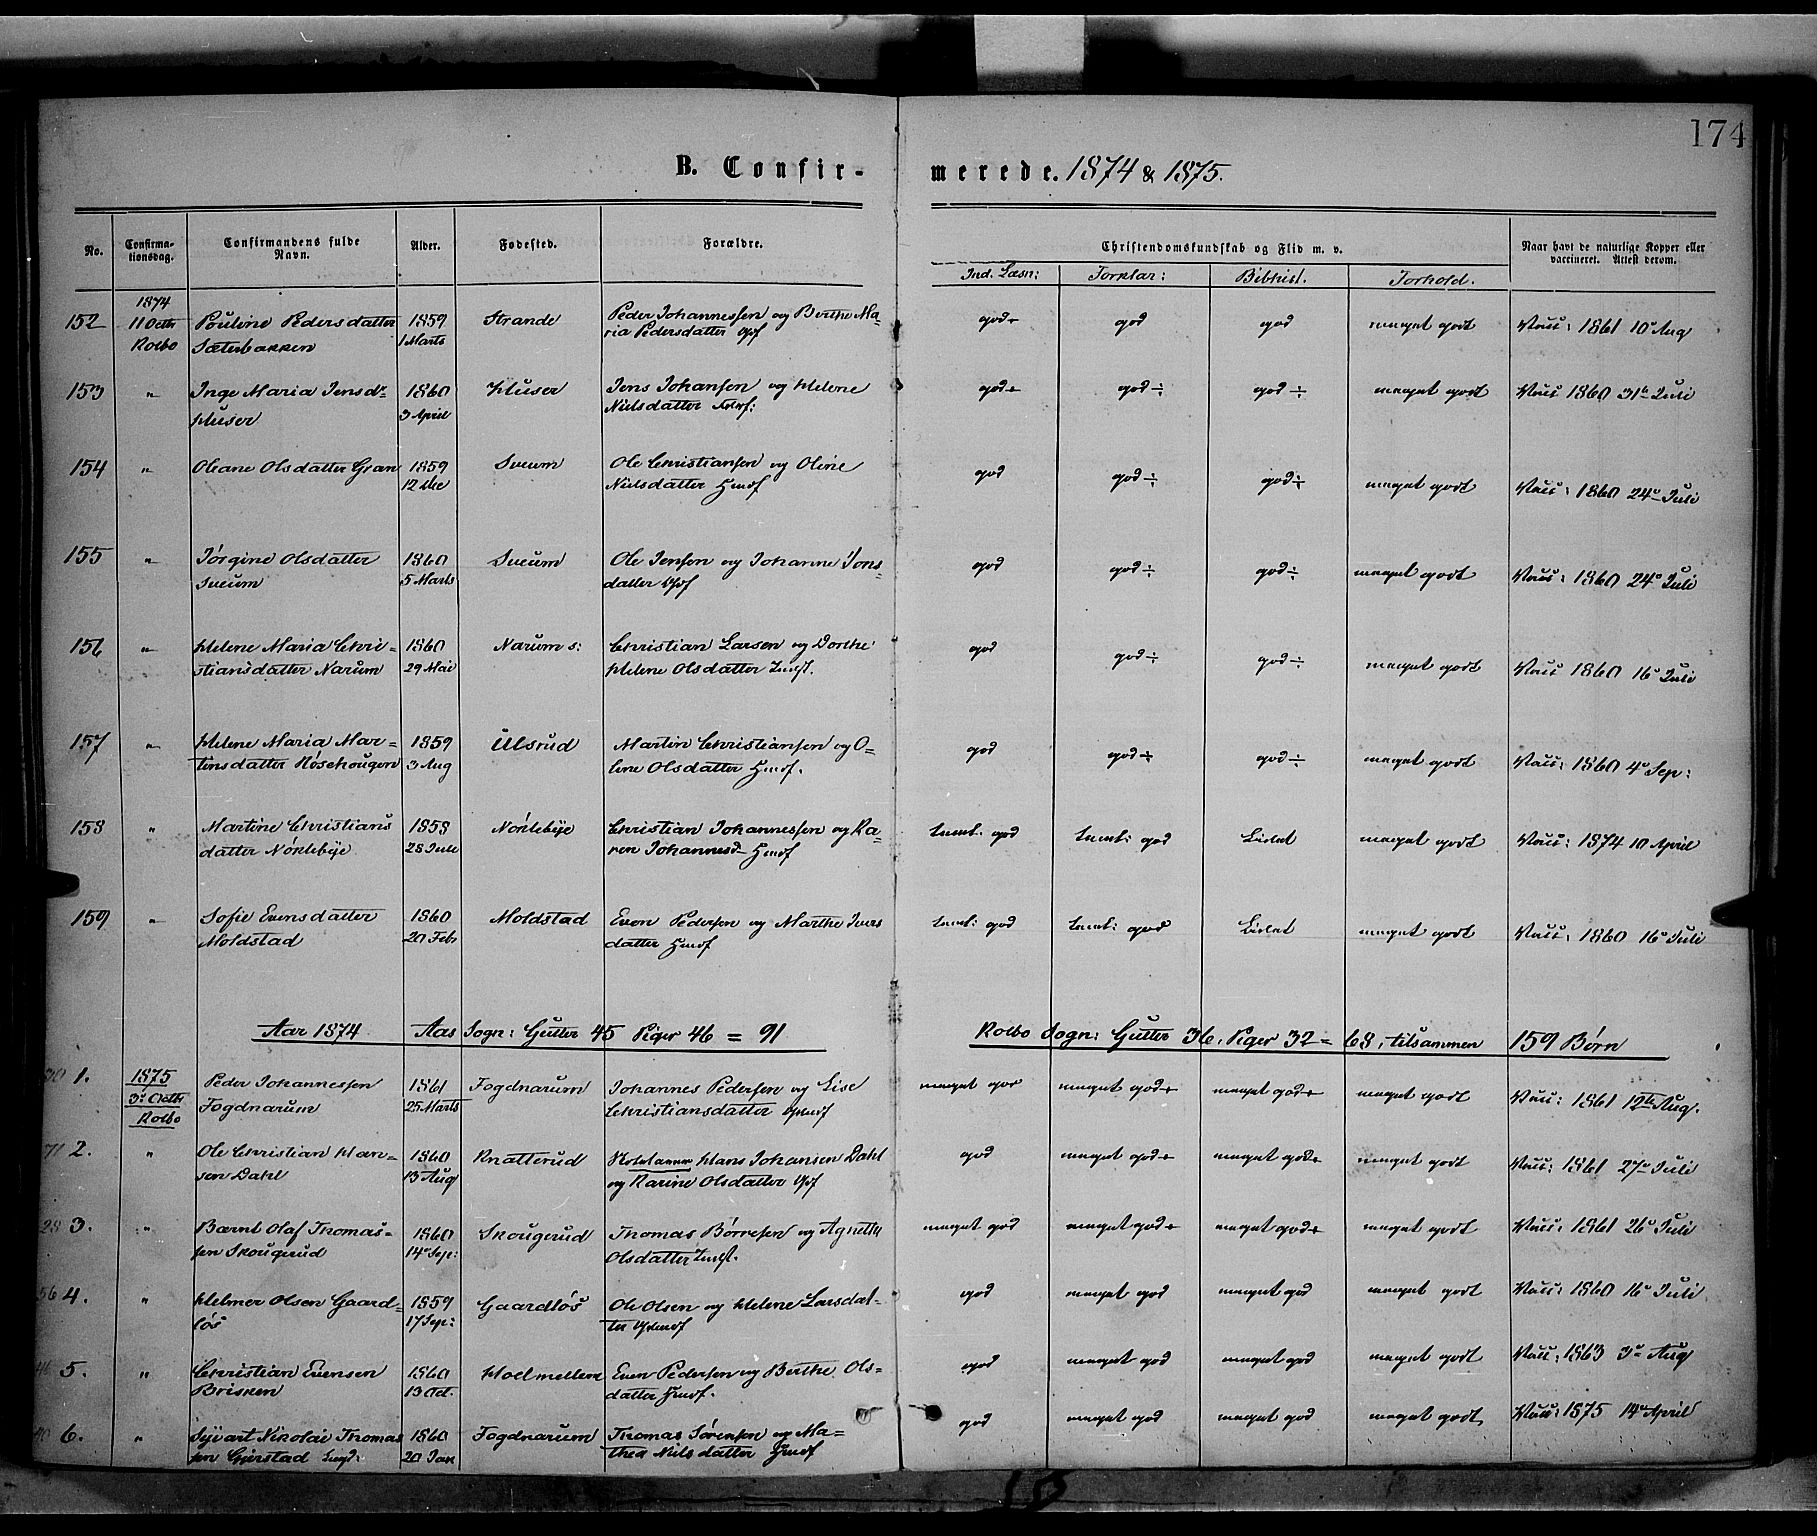 174
B. Confirmerede. 1874 & 1875.
No. Confirmationsdag. Confirmandens fulde Navn. Alder. Fødested. Forældre. Christendomskundskab og Flid m. v. Naar havt de naturlige Kopper eller vaccineret. Attest derom.
Ind. Læsn: Forklar: Bibhist. Forhold.
152 1874 11 Octb Kolbo Pouline Pedersdatter Sæterbakken 1859 1 Marts Strande Peder Johannessen og Berthe Maria Pedersdatter god+ god god meget godt Vacc: 1861 10 Aug
153 " Inge Maria Jensd: Huser 1860 3 April Huser Jens Johansen og Helene Nielsdatter god+ god÷ god÷ meget godt Vacc 1860 31te Juli
154 " Oleane Olsdatter Gran 1859 12 Dec Sveum Ole Christiansen og Oline Nielsdatter Husmf god god÷ god÷ meget godt Vacc: 1860 24e Juli
155 " Jørgine Olsdatter Sveum 1860 5 Marts Sveum Ole Jensen og Johanne Jonsdatter god god÷ god÷ meget godt Vacc: 1860 24e Juli
156 " Helene Maria Christiansdatter Narum 1860 29 Mai Narum s: Christian Larsen og Dorthe Helene Olsdatter god god÷ god÷ meget godt Vacc 1860 16e Juli
157 " Helene Maria Martinsdatter Høsehougen 1859 3 Aug Ulsrud Martin Christiansen og Olene Olsdatter Husmf. god god÷ god÷ meget godt Vacc: 1860 4e Sep:
158 " Martine Christiansdatter Nøklebye 1858 28 Jule Nøklebye Christian Johannessen og Karen Johannesd Husmf temt: god temt: god Lidet meget godt Vacc: 1874 10 April
159 " Sofie Evensdatter Moldstad 1860 20 Feb Moldstad Even Pedersen og Marthe Iversdatter Husmf temt: god temt: god Lidet meget godt Vacc: 1860 16e Juli
Aar 1874 Aas Sogn: Gutter 45 Piger 46 = 91 Kolbo Sogn: Gutter 36, Piger 32 = 68, tilsammen 159 Børn
1. 1875 3e Octb Kolbo Peder Johannessen Fogdnarum 1861 25 Marts Fogdnarum Johannes Pedersen og Lise Christiansdatter meget god meget god+ meget god+ meget godt Vacc: 1861 12te Aug.
2. " Ole Christian Hansen Dahl 1860 13 Aug Knatterud Hans Johansen Dahl og Karine Olsdatter god meget god+ meget god+ meget godt Vacc: 1861 27e Juli
28 3. " Bærnt Olaf Thomassen Skougerud 1860 14e Sep: Skougerud Thomas Børresen og Agnethe Olsdatter meget god meget god+ meget god+ meget godt Vacc: 1861 26e Juli
56 4. " Helmer Olsen Gaardløs 1859 17 Sep: Gaardløs Ole Olsen og Helene Larsdatter god meget god meget god meget godt Vacc: 1860 16e Juli
5. " Christian Evensen Brisken 1860 13 Oct. Hoelmellem Even Pedersen og Berthe Olsdatter Husmf. god meget god meget god meget godt Vacc: 1863 3e Aug
6. " Syvart Nikolai Thomassen Gjerstad 1860 20 Jan Fogdnarum Thomas Sørensen og Mathea Nielsdatter Husmf god meget god meget god meget godt Vacc: 1875 14e April